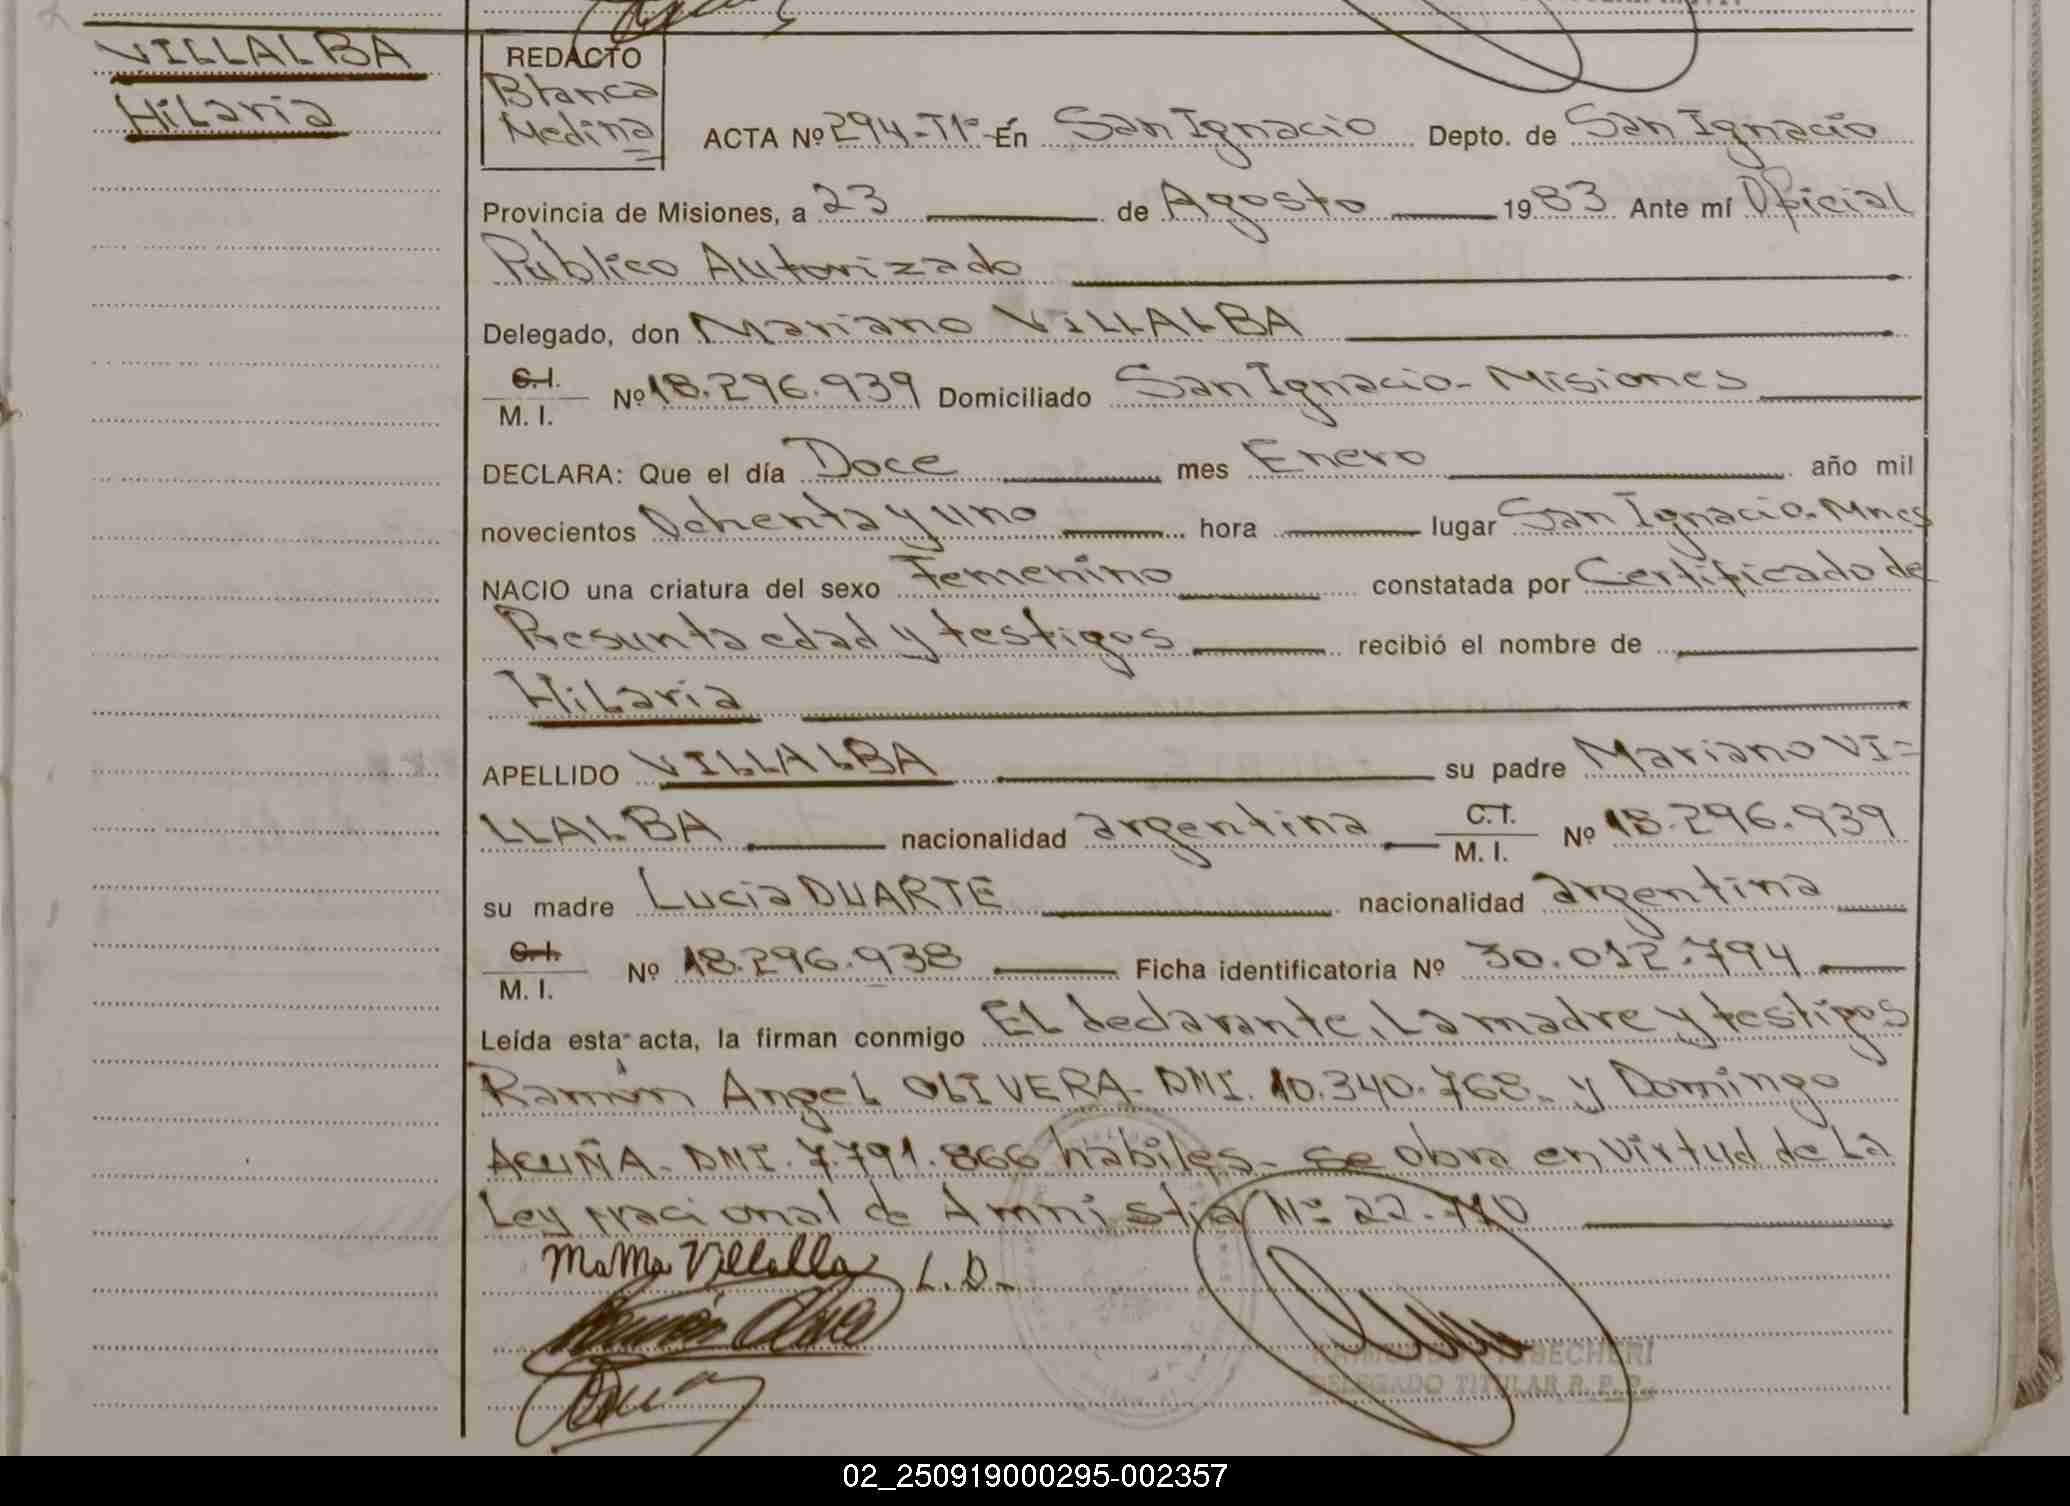 VILLALBA
Hilaria
REDACTO
Blanca
Medina
ACTA Nº 294-Tº1º- En San Ignacio Depto. de San Ignacio
Provincia de Misiones, a 23 de Agosto 1983 Ante mí Oficial
Público Autorizado
Delegado, don Mariano VILLALBA
C.I.
M. I. Nº 18.296.939 Domiciliado San Ignacio- Misiones
DECLARA: Que el día Doce mes Enero año mil
novecientos Ochenta y uno hora lugar San Ignacio. Mnes
NACIO una criatura del sexo Femenino constatada por Certificado de
Presunta edad y testigos recibió el nombre de
Hilaria
APELLIDO VILLALBA su padre Mariano VI=
LLALBA nacionalidad argentina C.I.
M. I. Nº 18.296.939
su madre Lucia DUARTE nacionalidad argentina
C.I.
M. I. Nº 18.296.938 Ficha identificatoria Nº 30.012.794
Leída esta acta, la firman conmigo El declarante, La madre y testigos
Ramón Angel OLIVERA- DNI. 10.340.768- y Domingo
ACUÑA- DNI. 7.791.866 hábiles- se obra en virtud de La
Ley nacional de Amnistia Nº 22.770
Villalba L.D.-
DELEGADO TITULAR R. P. P.
02_250919000295-002357